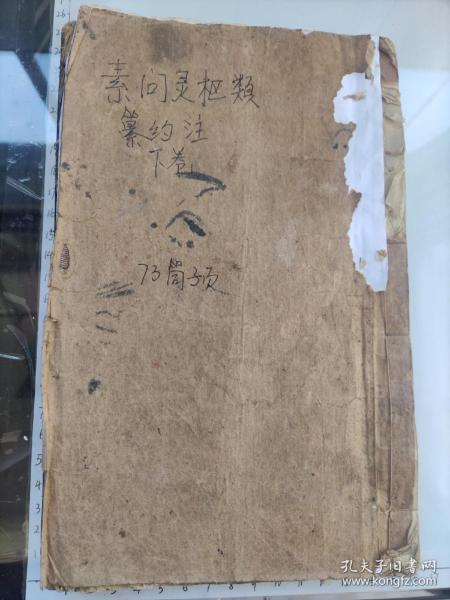 素问灵枢類
纂約注
下卷
73筒子页
孔夫子旧书网
www.kongfz.com